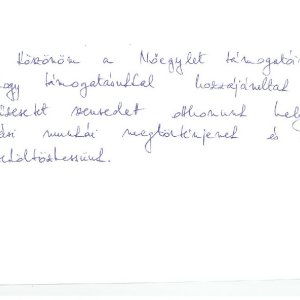 köszönöm a Nőegylet támogatás
ogy támogatásukkal hozzájárultak
űzesetet szenvedett otthonunk hely
ási munkái megtörténjenek és
eköltözhessünk.